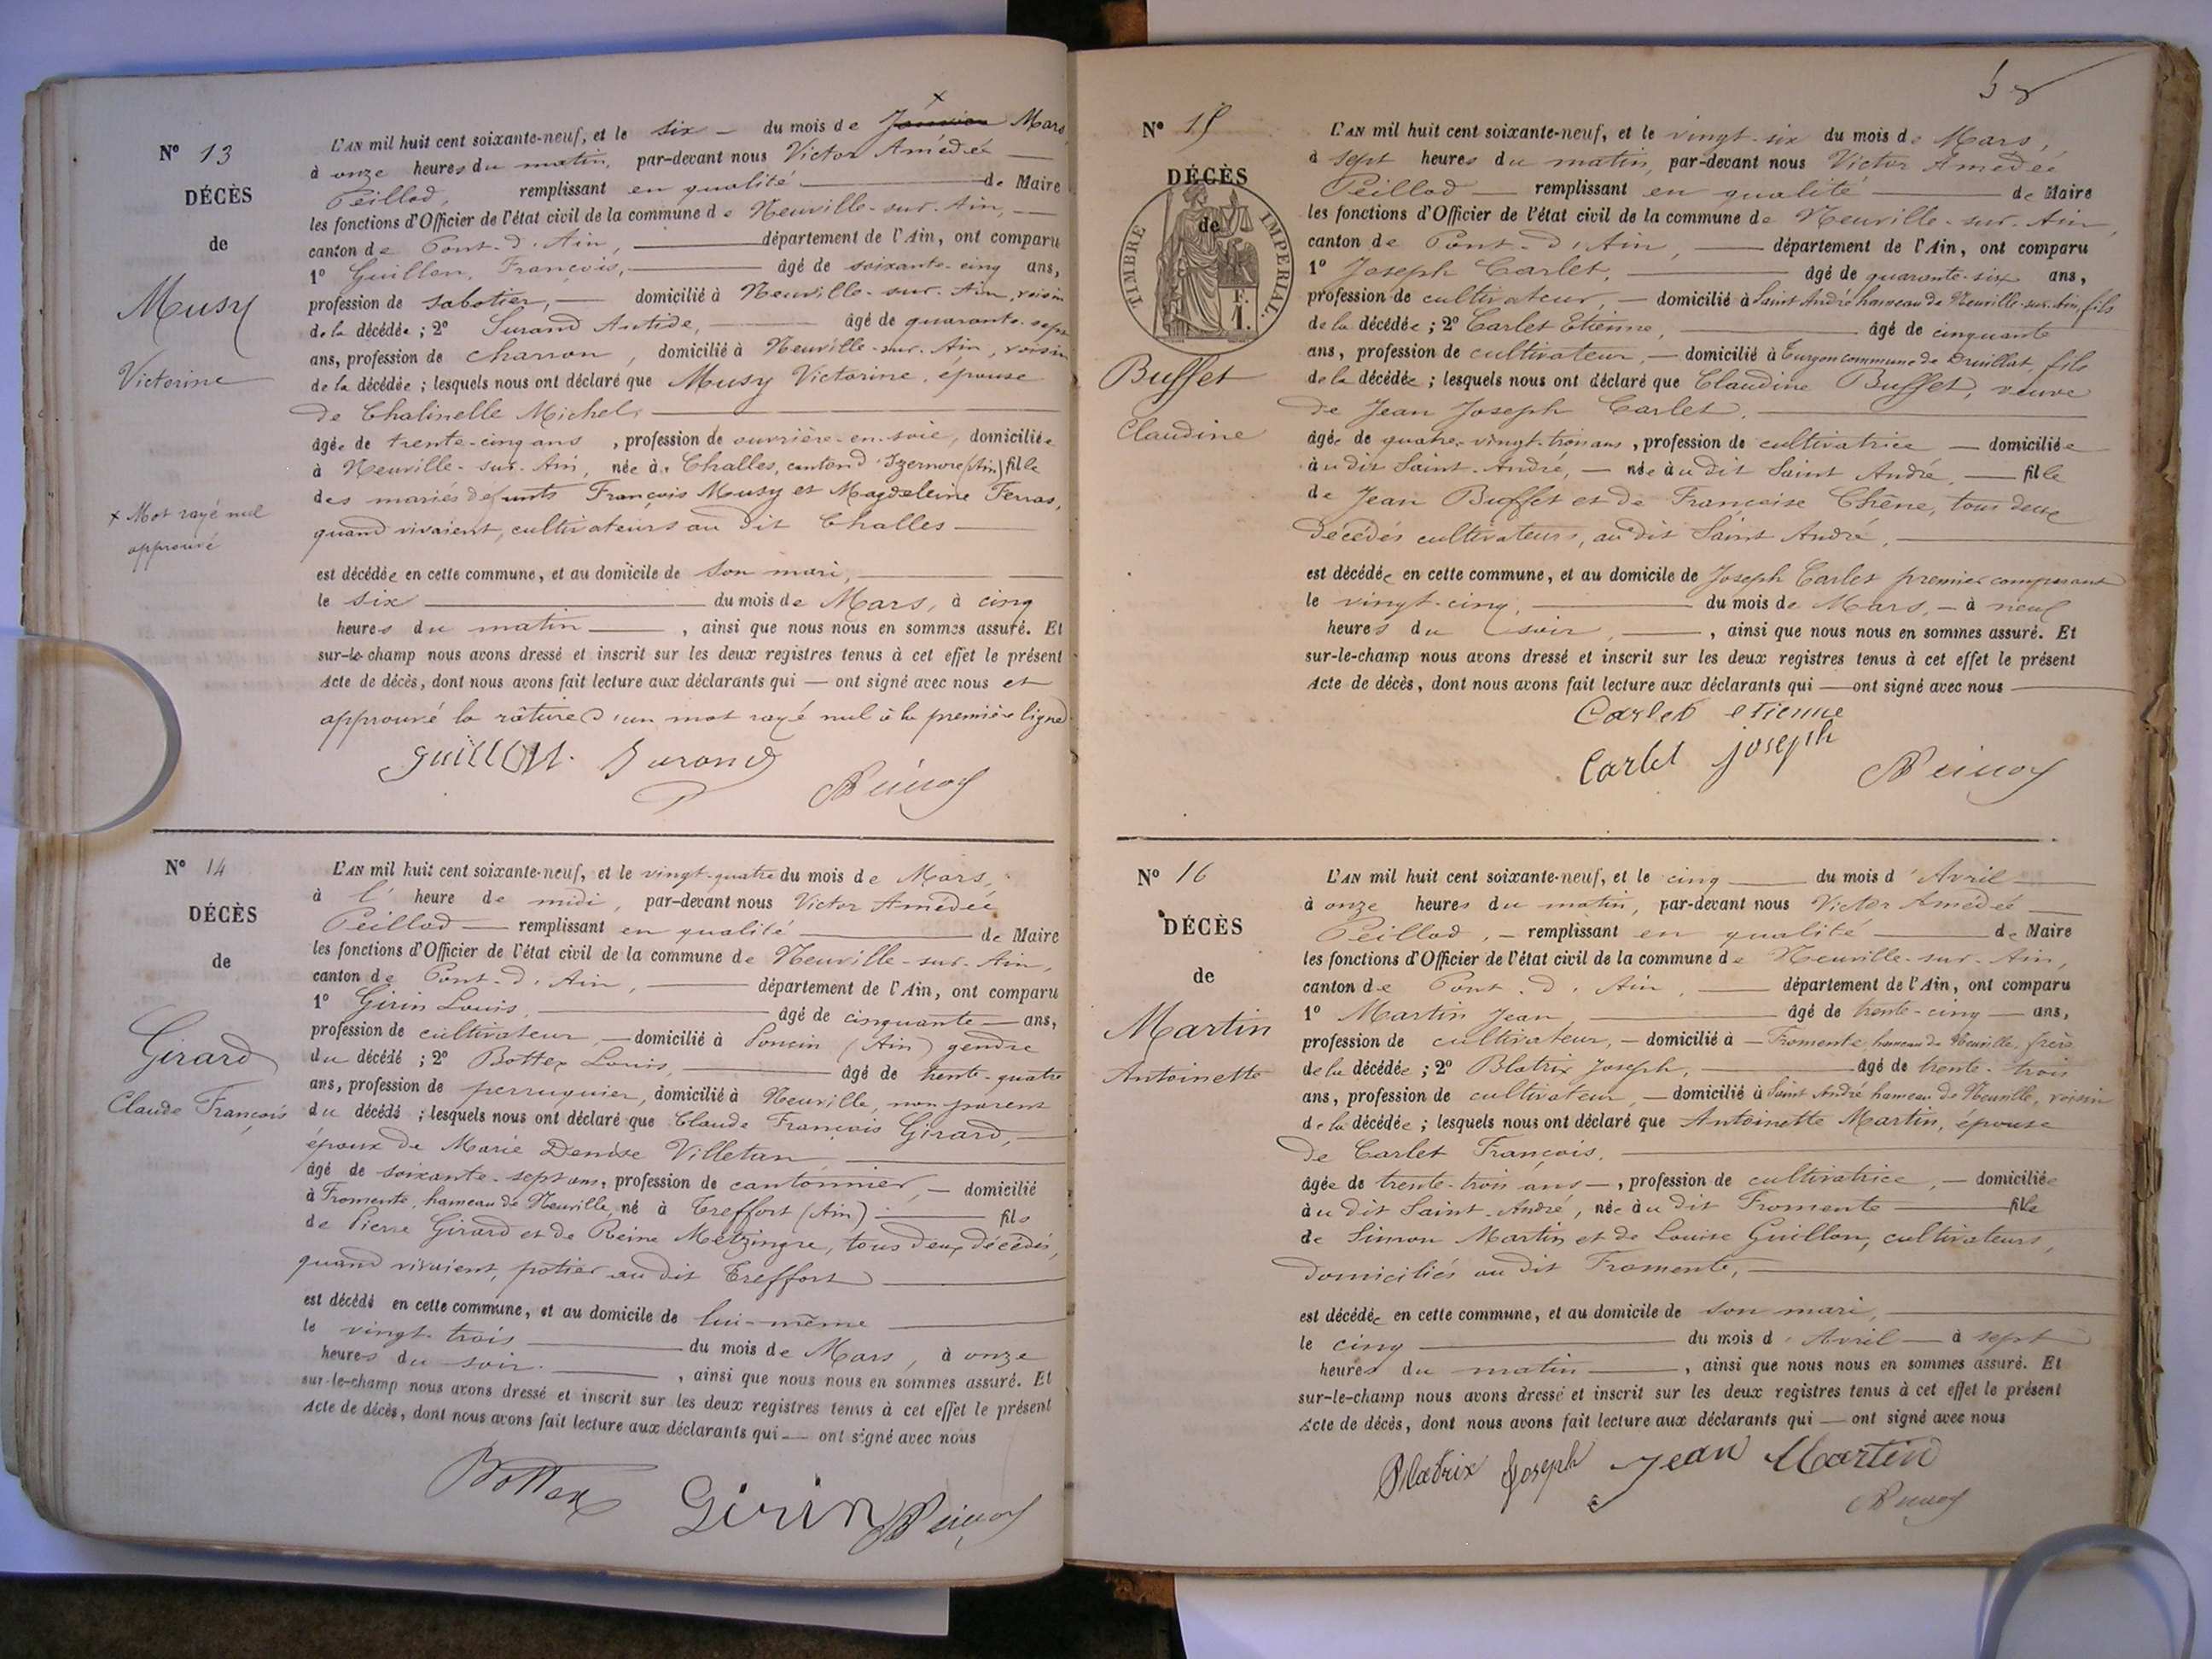 N° 13
DÉCÈS
de
Musy
Victorine
× Mot rayé nul
approuvé
L'AN mil huit cent soixante-neuf, et le six du mois de Janvier × Mars
à onze heures du matin, par-devant nous Victor Amédée
Peillod, remplissant en qualité de Maire
les fonctions d'Officier de l'état civil de la commune de Neuville-sur-Ain,
canton de Pont-d'Ain, département de l'Ain, ont comparu
1° Guillon, François, âgé de soixante-cinq ans,
profession de sabotier, domicilié à Neuville-sur-Ain, voisin
de la décédée ; 2° Durand Antide, âgé de quarante-sept
ans, profession de charron, domicilié à Neuville-sur-Ain, voisin
de la décédée ; lesquels nous ont déclaré que Musy Victorine, épouse
de Chalinelle Michel,
âgée de trente-cinq ans, profession de ouvrière-en-soie, domiciliée
à Neuville-sur-Ain, née à Challes, canton d'Izernore (Ain) fille
des mariés défunts François Musy et Magdeleine Ferras,
quand vivaient, cultivateurs au dit Challes
est décédée en cette commune, et au domicile de son mari,
le six du mois de Mars, à cinq
heures du matin, ainsi que nous nous en sommes assuré. Et
sur-le-champ nous avons dressé et inscrit sur les deux registres tenus à cet effet le présent
Acte de décès, dont nous avons fait lecture aux déclarants qui — ont signé avec nous et
approuvé la râture d'un mot rayé nul à la première ligne
Guillon. Durand
N° 14
DÉCÈS
de
Girard
Claude François
L'AN mil huit cent soixante-neuf, et le vingt-quatre du mois de Mars,
à l'heure de midi, par-devant nous Victor Amédée
Peillod remplissant en qualité de Maire
les fonctions d'Officier de l'état civil de la commune de Neuville-sur-Ain,
canton de Pont-d'Ain, département de l'Ain, ont comparu
1° Girin Louis, âgé de cinquante ans,
profession de cultivateur, domicilié à Poncin (Ain) gendre
du décédé ; 2° Bottex Louis, âgé de trente-quatre
ans, profession de perruquier, domicilié à Neuville, non parent
du décédé ; lesquels nous ont déclaré que Claude François Girard,
époux de Marie Denise Villetan
âgé de soixante-sept ans, profession de cantonnier, domicilié
à Fromente, hameau de Neuville, né à Treffort (Ain) fils
de Pierre Girard et de Reine Metzingre, tous deux décédés,
quand vivaient, potier au dit Treffort
est décédé en cette commune, et au domicile de lui-même
le vingt-trois du mois de Mars, à onze
heures du soir, ainsi que nous nous en sommes assuré. Et
sur-le-champ nous avons dressé et inscrit sur les deux registres tenus à cet effet le présent
Acte de décès, dont nous avons fait lecture aux déclarants qui — ont signé avec nous
Bottex Girin
58
N° 15
DÉCÈS
de
TIMBRE IMPERIAL
F.
1.
Buffet
Claudine
L'AN mil huit cent soixante-neuf, et le vingt-six du mois de Mars,
à sept heures du matin, par-devant nous Victor Amédée
Peillod remplissant en qualité de Maire
les fonctions d'Officier de l'état civil de la commune de Neuville-sur-Ain,
canton de Pont-d'Ain, département de l'Ain, ont comparu
1° Joseph Carlet, âgé de quarante-six ans,
profession de cultivateur, domicilié à Saint André hameau de Neuville-sur-Ain, fils
de la décédée ; 2° Carlet Etienne, âgé de cinquante
ans, profession de cultivateur, domicilié à Turgon commune de Druillat, fils
de la décédée ; lesquels nous ont déclaré que Claudine Buffet, veuve
de Jean Joseph Carlet,
âgée de quatre-vingt-trois ans, profession de cultivatrice domiciliée
à u dit Saint-André, née à u dit Saint André, fille
de Jean Buffet et de Françoise Chêne, tous deux
décédés cultivateurs, au dit Saint André,
est décédée en cette commune, et au domicile de Joseph Carlet premier comparant
le vingt-cinq, du mois de Mars, à neuf
heures du soir, ainsi que nous nous en sommes assuré. Et
sur-le-champ nous avons dressé et inscrit sur les deux registres tenus à cet effet le présent
Acte de décès, dont nous avons fait lecture aux déclarants qui — ont signé avec nous
Carlet etienne
Carlet joseph
N° 16
DÉCÈS
de
Martin
Antoinette
L'AN mil huit cent soixante-neuf, et le cinq du mois d'Avril
à onze heures du matin, par-devant nous Victor Amédée
Peillod, remplissant en qualité de Maire
les fonctions d'Officier de l'état civil de la commune de Neuville-sur-Ain,
canton de Pont-d'Ain, département de l'Ain, ont comparu
1° Martin Jean, âgé de trente-cinq ans,
profession de cultivateur, domicilié à Fromente, hameau de Neuville, frère
de la décédée ; 2° Blatrix Joseph, âgé de trente-trois
ans, profession de cultivateur, domicilié à Saint André hameau de Neuville, voisin
de la décédée ; lesquels nous ont déclaré que Antoinette Martin, épouse
de Carlet François,
âgée de trente-trois ans, profession de cultivatrice, domiciliée
à u dit Saint-André, née à u dit Fromente fille
de Simon Martin et de Louise Guillon, cultivateurs,
domiciliés au dit Fromente,
est décédée en cette commune, et au domicile de son mari,
le cinq du mois d'Avril à sept
heures du matin, ainsi que nous nous en sommes assuré. Et
sur-le-champ nous avons dressé et inscrit sur les deux registres tenus à cet effet le présent
Acte de décès, dont nous avons fait lecture aux déclarants qui — ont signé avec nous
Blatrix Joseph Jean Martin